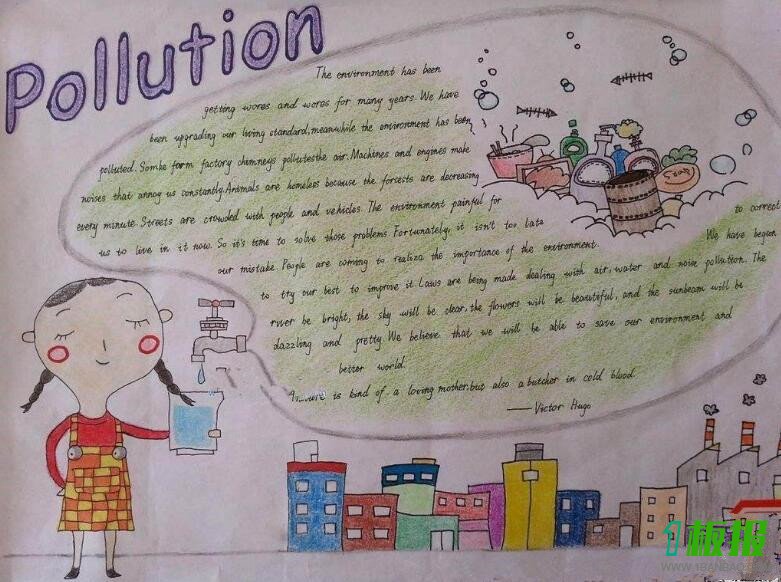 Pollution
The environment has been
getting wores and wores for many years. We have
been upgrading our living standard, meanwhile the environment has been
polluted. Somke form factory chimneys pollutes the air. Machines and engines make
noises that annoy us constantly. Animals are homeless because the forsests are decreasing
every minute. Streets are crowded with people and vehicles. The environment painful for
us to live in it now. So it's time to solve those problems. Fortunately, it isn't too late to correct
our mistake. People are coming to realiza the importance of the environment. We have begun
to try our best to improve it. Laws are being made dealing with air, water and noise pollution. The
river be bright, the sky will be clear, the flowers will be beautiful, and the sunbeam will be
dazzling and pretty. We believe that we will be able to save our environment and
better world.
is kind of a loving mother, but also a butcher in cold blood.
——Victor Hugo
Soap
1板报
WWW.1BANBAO.COM